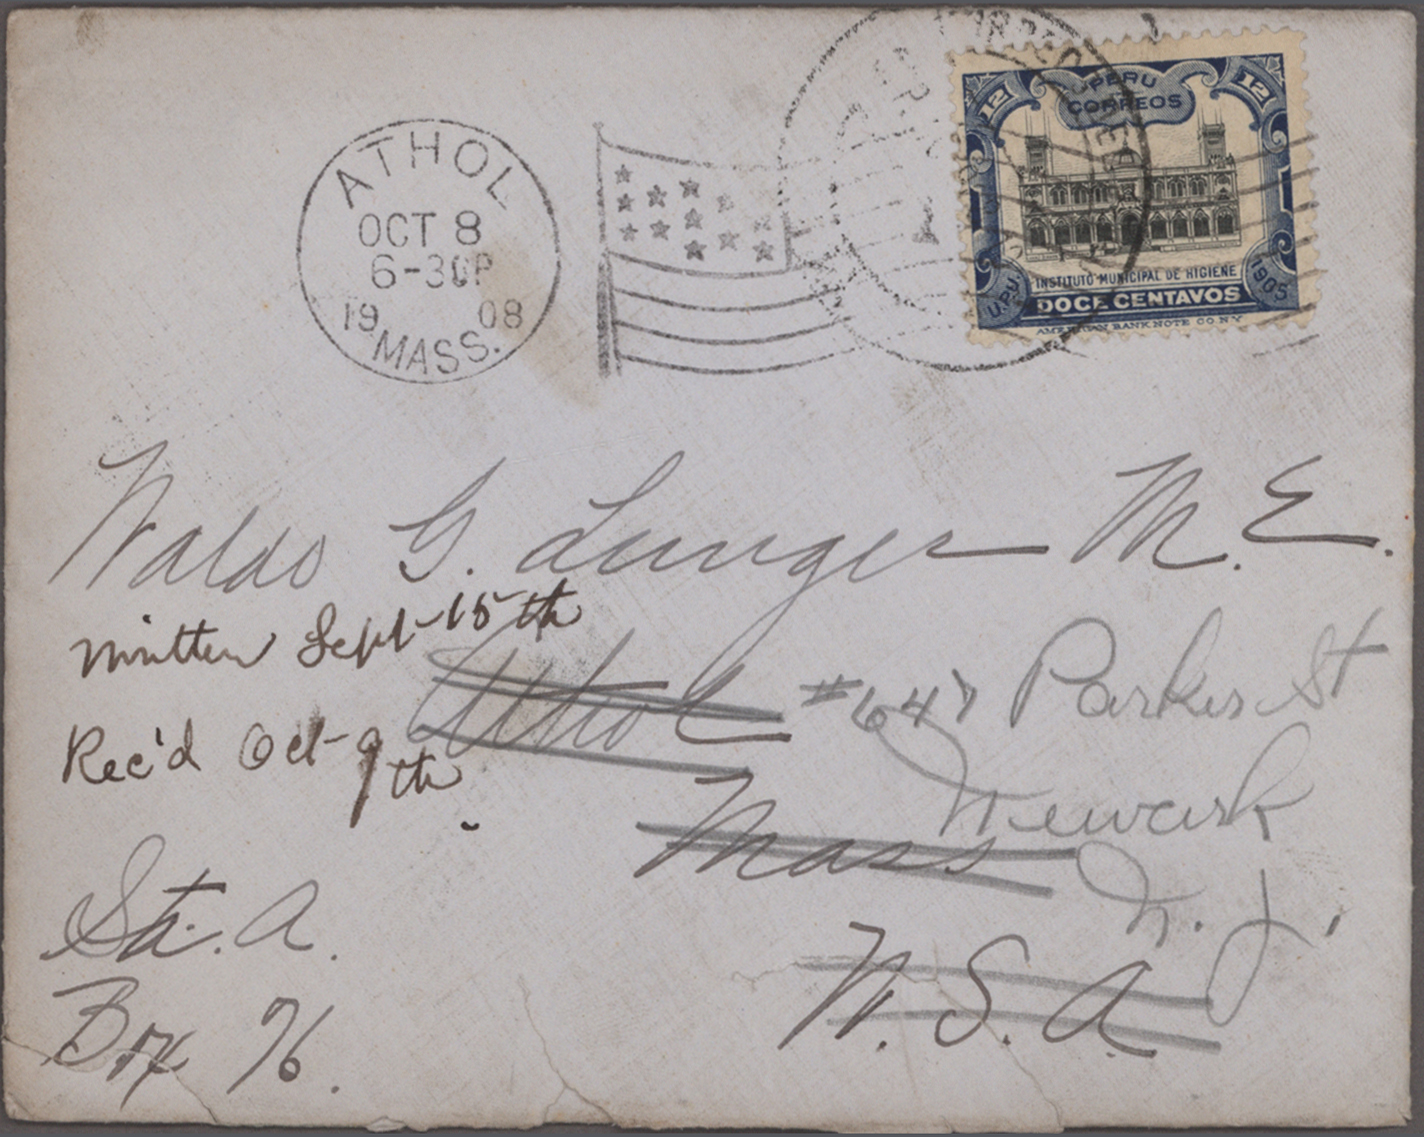 ATHOL
OCT 8
6-30P
19 08
MASS.
12 PERU 12
CORREOS
INSTITUTO MUNICIPAL DE HIGIENE
U.P.U. DOCE CENTAVOS 1905
AMERICAN BANK NOTE CO. N.Y.
Waldo G. Lunger M.E.
Written Sept 15th
Athol #647 Parker St
Rec'd Oct 9th
Newark
Mass
N.J.
Sta. A.
U.S.A.
Box 76.